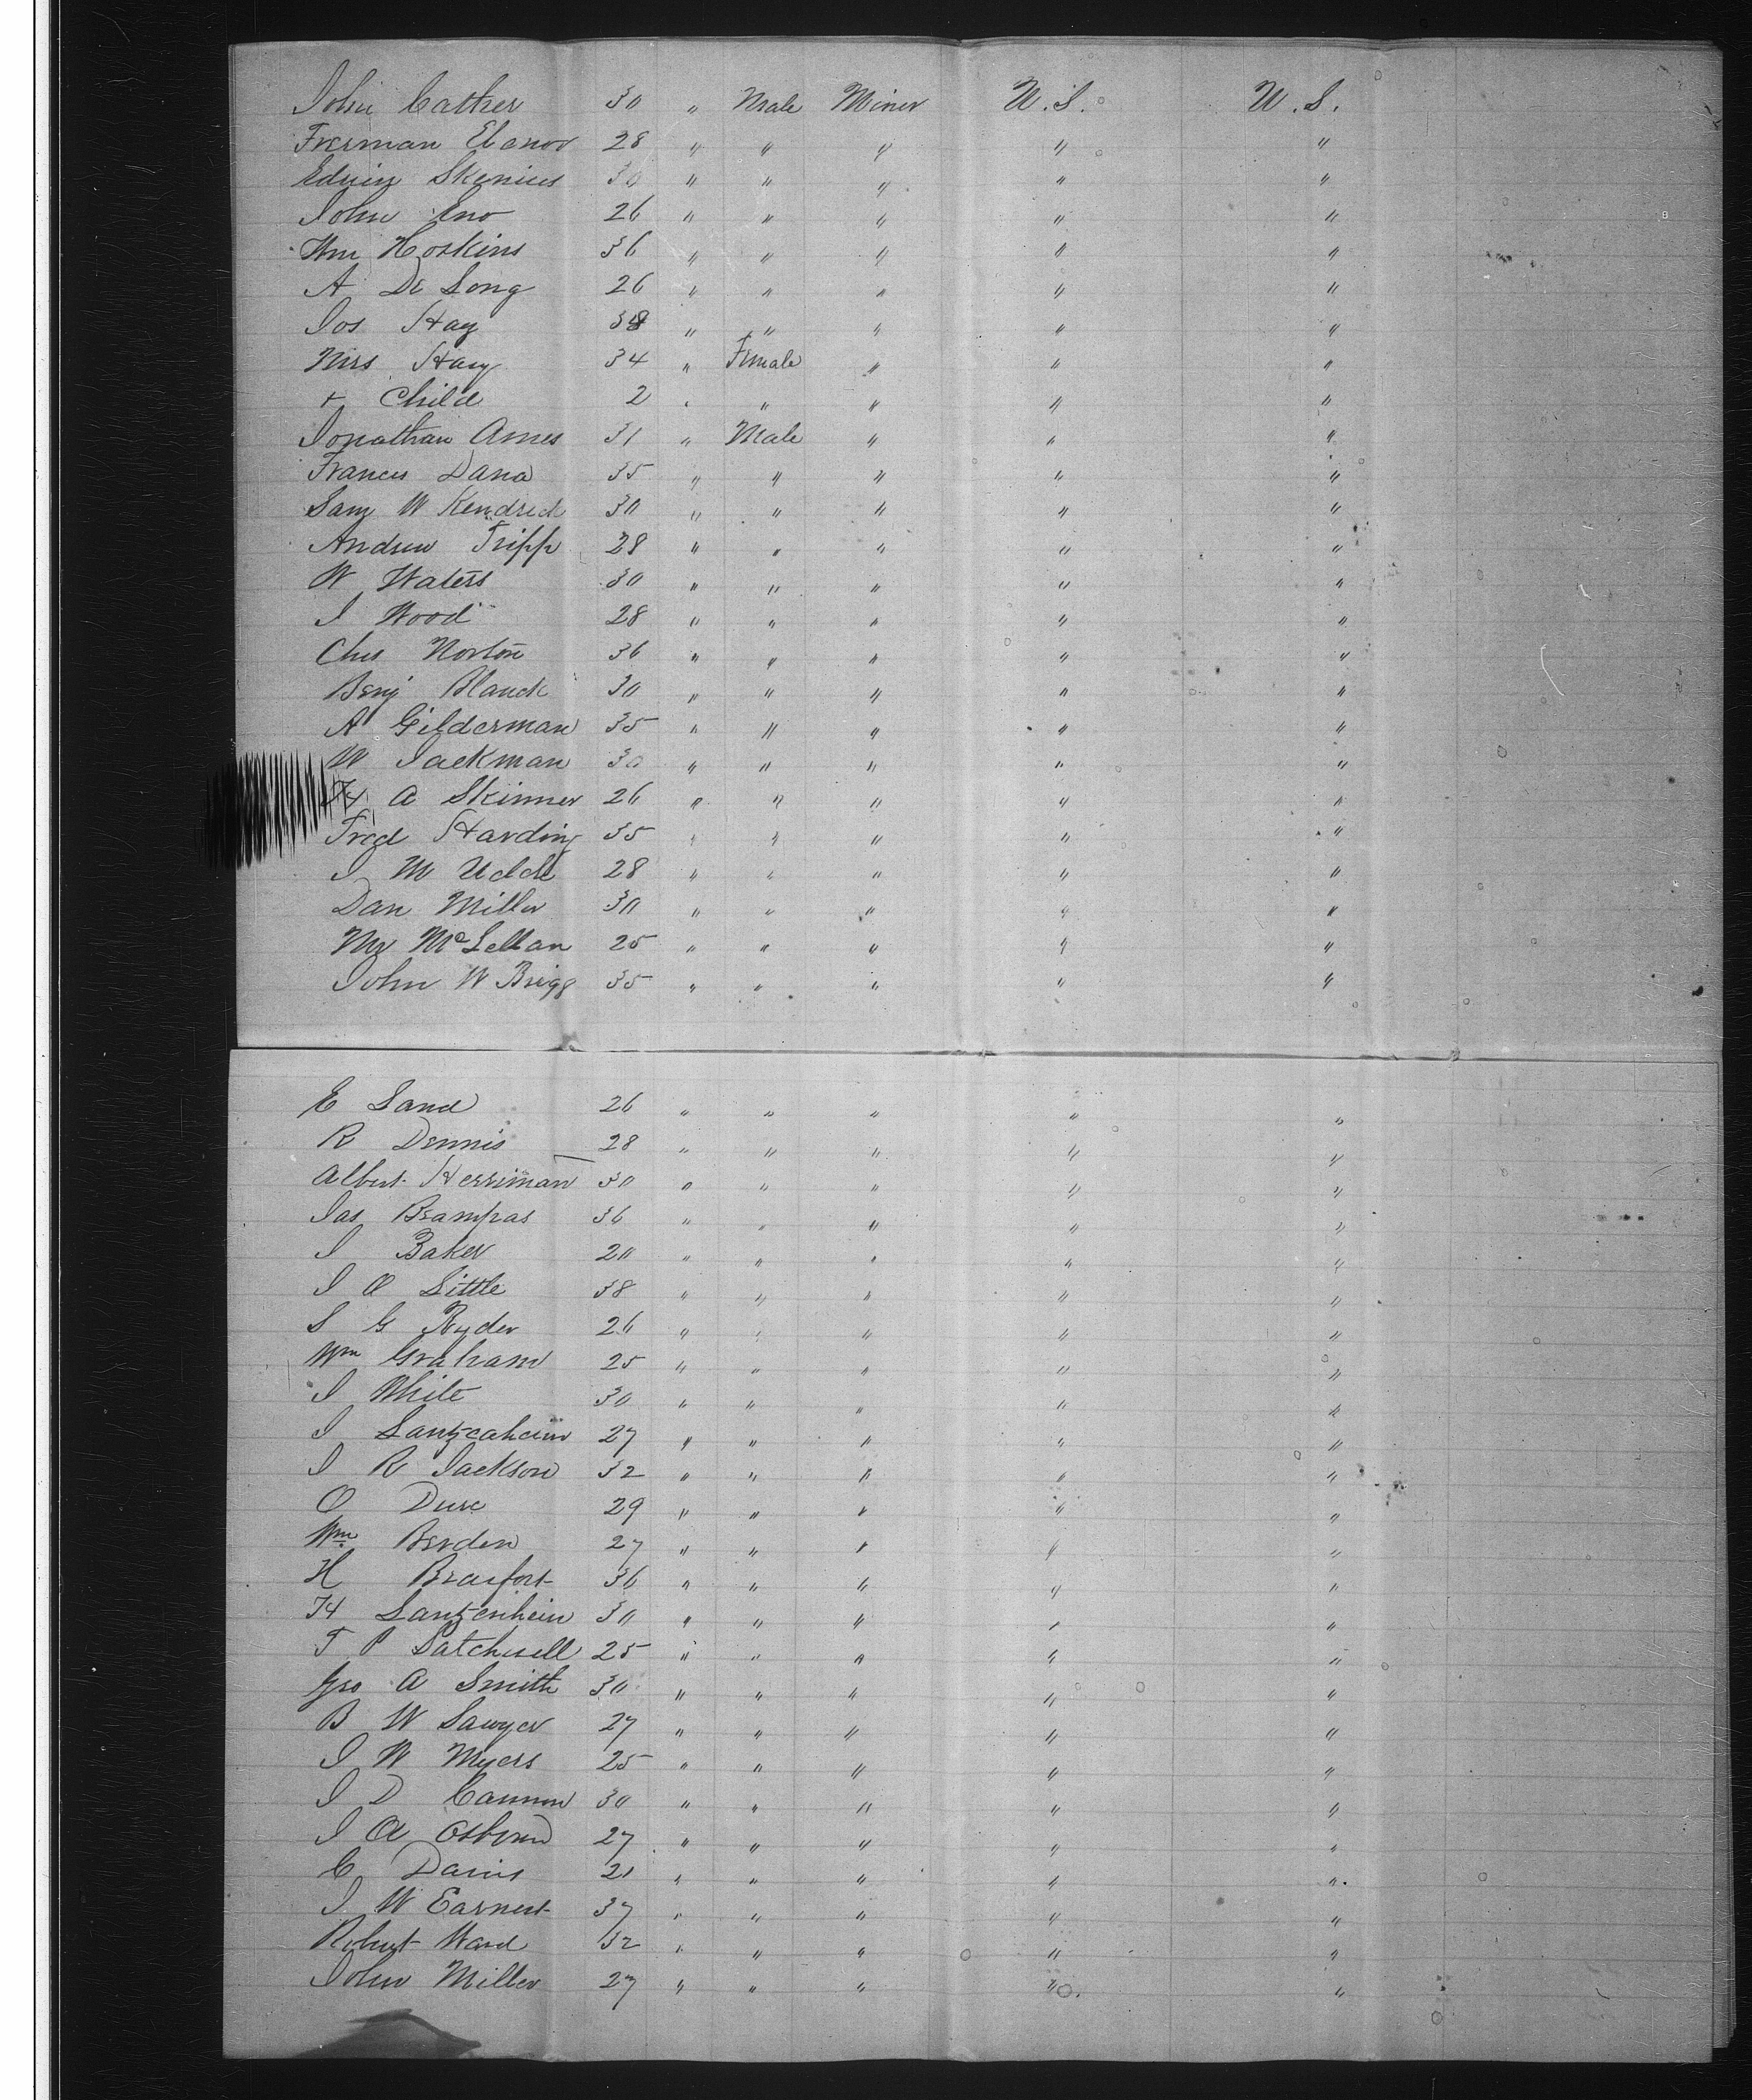 John Cather 30 " Male Miner U.S. U.S.
Freeman Elenor 28 " " " " "
Edwin Skenius 30 " " " " "
John Eno 26 " " " " "
Wm Hoskins 36 " " " " "
A De Long 26 " " " " "
Jos Hay 38 " " " " "
Mrs Hay 34 " Female " " "
+ Child 2 " " " " "
Jonathan Ames 31 " Male " " "
Frances Dana 35 " " " " "
Sam W Kendrick 30 " " " " "
Andrew Tripp 28 " " " " "
W Waters 30 " " " " "
J Wood 28 " " " " "
Chs Norton 36 " " " " "
Benj Blanck 30 " " " " "
A Gilderman 35 " " " " "
W Jackman 30 " " " " "
H A Skinner 26 " " " " "
Fred Harding 35 " " " " "
J M Udde 28 " " " " "
Dan Miller 30 " " " " "
Mr McLellan 25 " " " " "
John W Brigg 35 " " " " "
E Land 26 " " " " "
R Dennis 28 " " " " "
Albert Herriman 30 " " " " "
Jas Brampas 36 " " " " "
J Baker 20 " " " " "
J O Little 38 " " " " "
S G Ryder 26 " " " " "
Wm Graham 25 " " " " "
J White 30 " " " " "
J 27 " " " " "
J R Jackson 32 " " " " "
O Dure 29 " " " " "
Wm Berden 27 " " " " "
H 36 " " " " "
H Lantzenhein 30 " " " " "
T P Satchwell 25 " " " " "
Geo A Smith 30 " " " " "
B W Sawyer 27 " " " " "
J W Myers 25 " " " " "
J D Cannon 30 " " " " "
J A Osborn 27 " " " " "
C Davis 21 " " " " "
J W Earnest 37 " " " " "
Robert Ward 32 " " " " "
John Miller 27 " " " " "